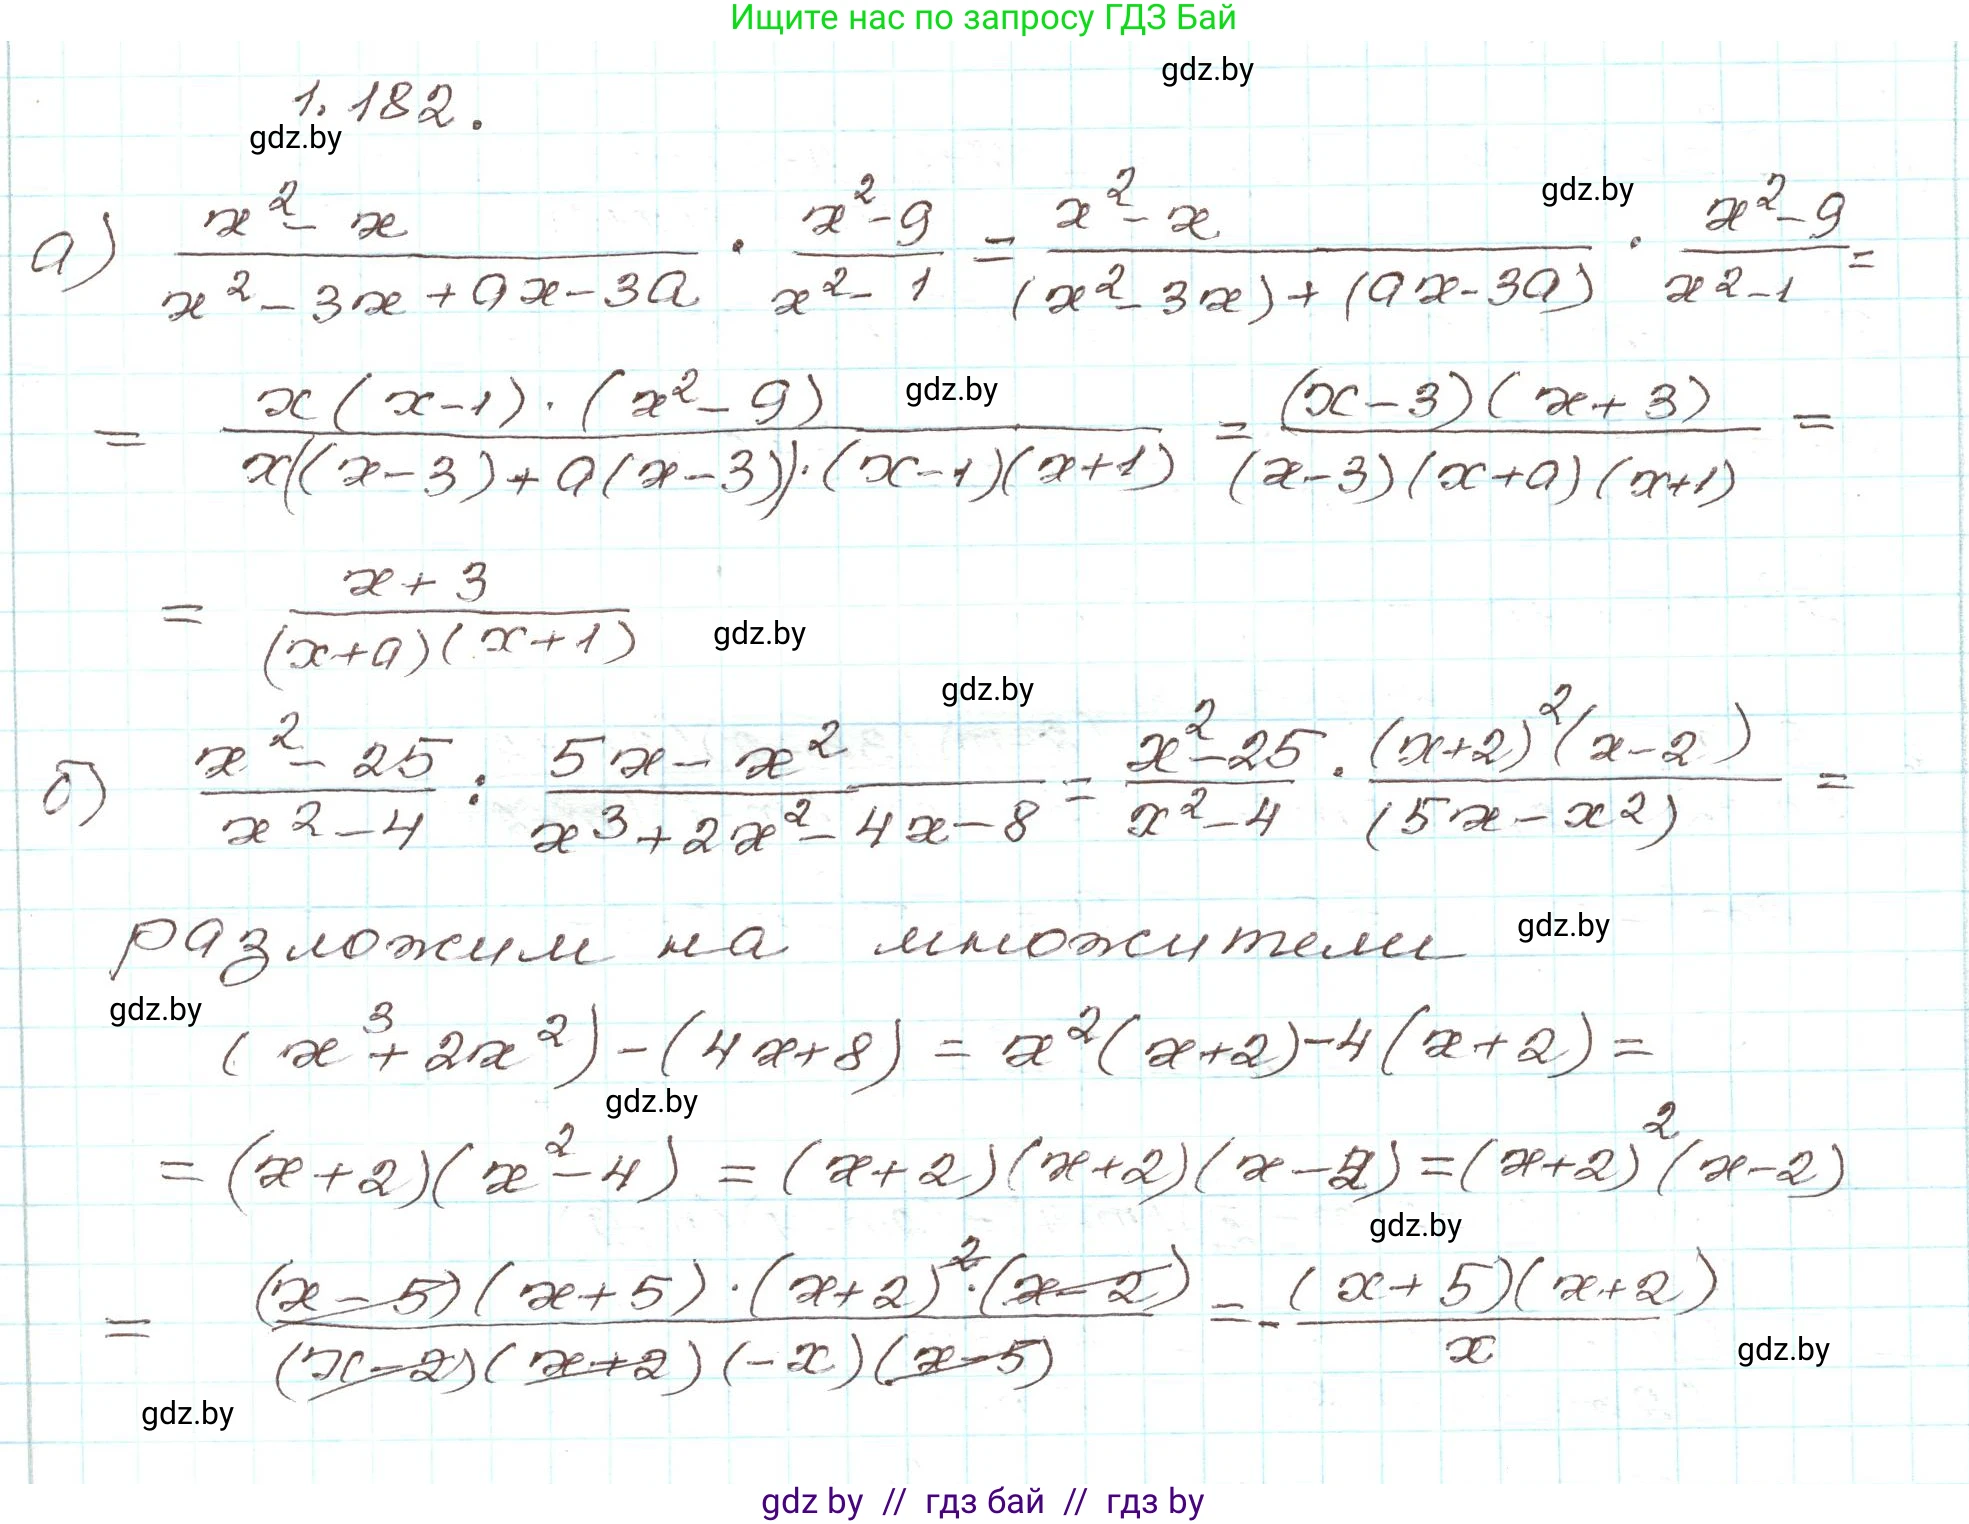 Ищите нас по запросу ГДЗ Бай
gdz.by
1.182.
gdz.by
gdz.by
а) (x² - x)/(x² - 3x + ax - 3a) · (x² - 9)/(x² - 1) = (x² - x)/((x² - 3x) + (ax - 3a)) · (x² - 9)/(x² - 1) =
gdz.by
= (x(x-1) · (x² - 9))/(x((x-3) + a(x-3)) · (x-1)(x+1)) = ((x-3)(x+3))/((x-3)(x+a)(x+1)) =
= (x+3)/((x+a)(x+1))
gdz.by
gdz.by
б) (x² - 25)/(x² - 4) : (5x - x²)/(x³ + 2x² - 4x - 8) = (x² - 25)/(x² - 4) · ((x+2)²(x-2))/((5x - x²)) =
разложим на множители
gdz.by
gdz.by
(x³ + 2x²) - (4x + 8) = x²(x+2) - 4(x+2) =
gdz.by
= (x+2)(x² - 4) = (x+2)(x+2)(x-2) = (x+2)²(x-2)
gdz.by
= ((x-5)(x+5) · (x+2)² · (x-2))/((x-2)(x+2)(-x)(x-5)) = - ((x+5)(x+2))/x
gdz.by
gdz.by
gdz by // гдз бай // гдз by